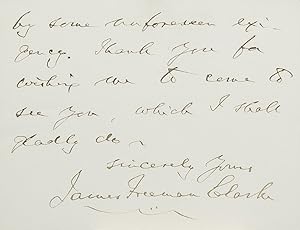 by some unforeseen exi-
gency. Thank you for
wishing me to come to
see you, which I shall
gladly do.
Sincerely Yours
James Freeman Clarke